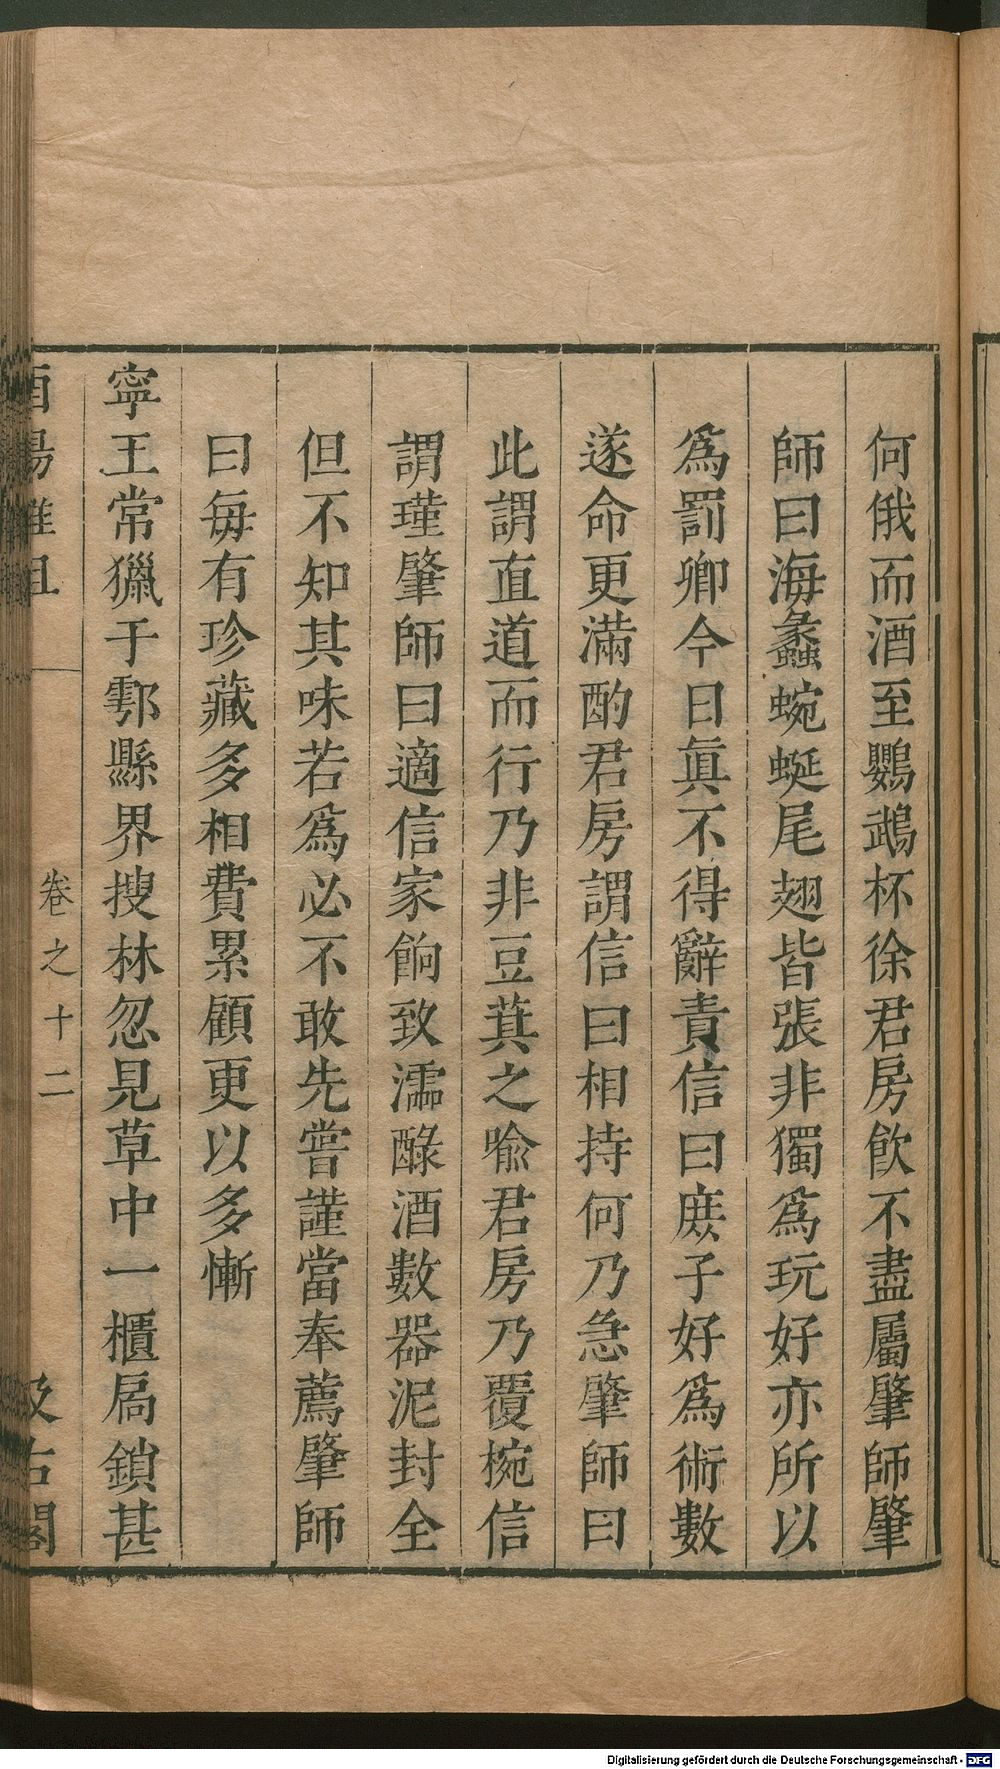 何俄而酒至鸚鵡杯徐君房飲不盡屬肇師肇
師曰海蠡蜿蜒尾翅皆張非獨爲玩好亦所以
爲罰卿今日眞不得辭責信曰庶子好爲術數
遂命更滿酌君房謂信曰相持何乃急肇師曰
此謂直道而行乃非豆萁之喻君房乃覆椀信
謂瑾肇師曰適信家餉致濡醁酒數器泥封全
但不知其味若爲必不敢先嘗謹當奉薦肇師
曰每有珍藏多相費累顧更以多慚
寧王常獵于鄠縣界搜林忽見草中一櫃扃鎖甚
酉陽雜俎 卷之十二 汲古閣
Digitalisierung gefördert durch die Deutsche Forschungsgemeinschaft - DFG